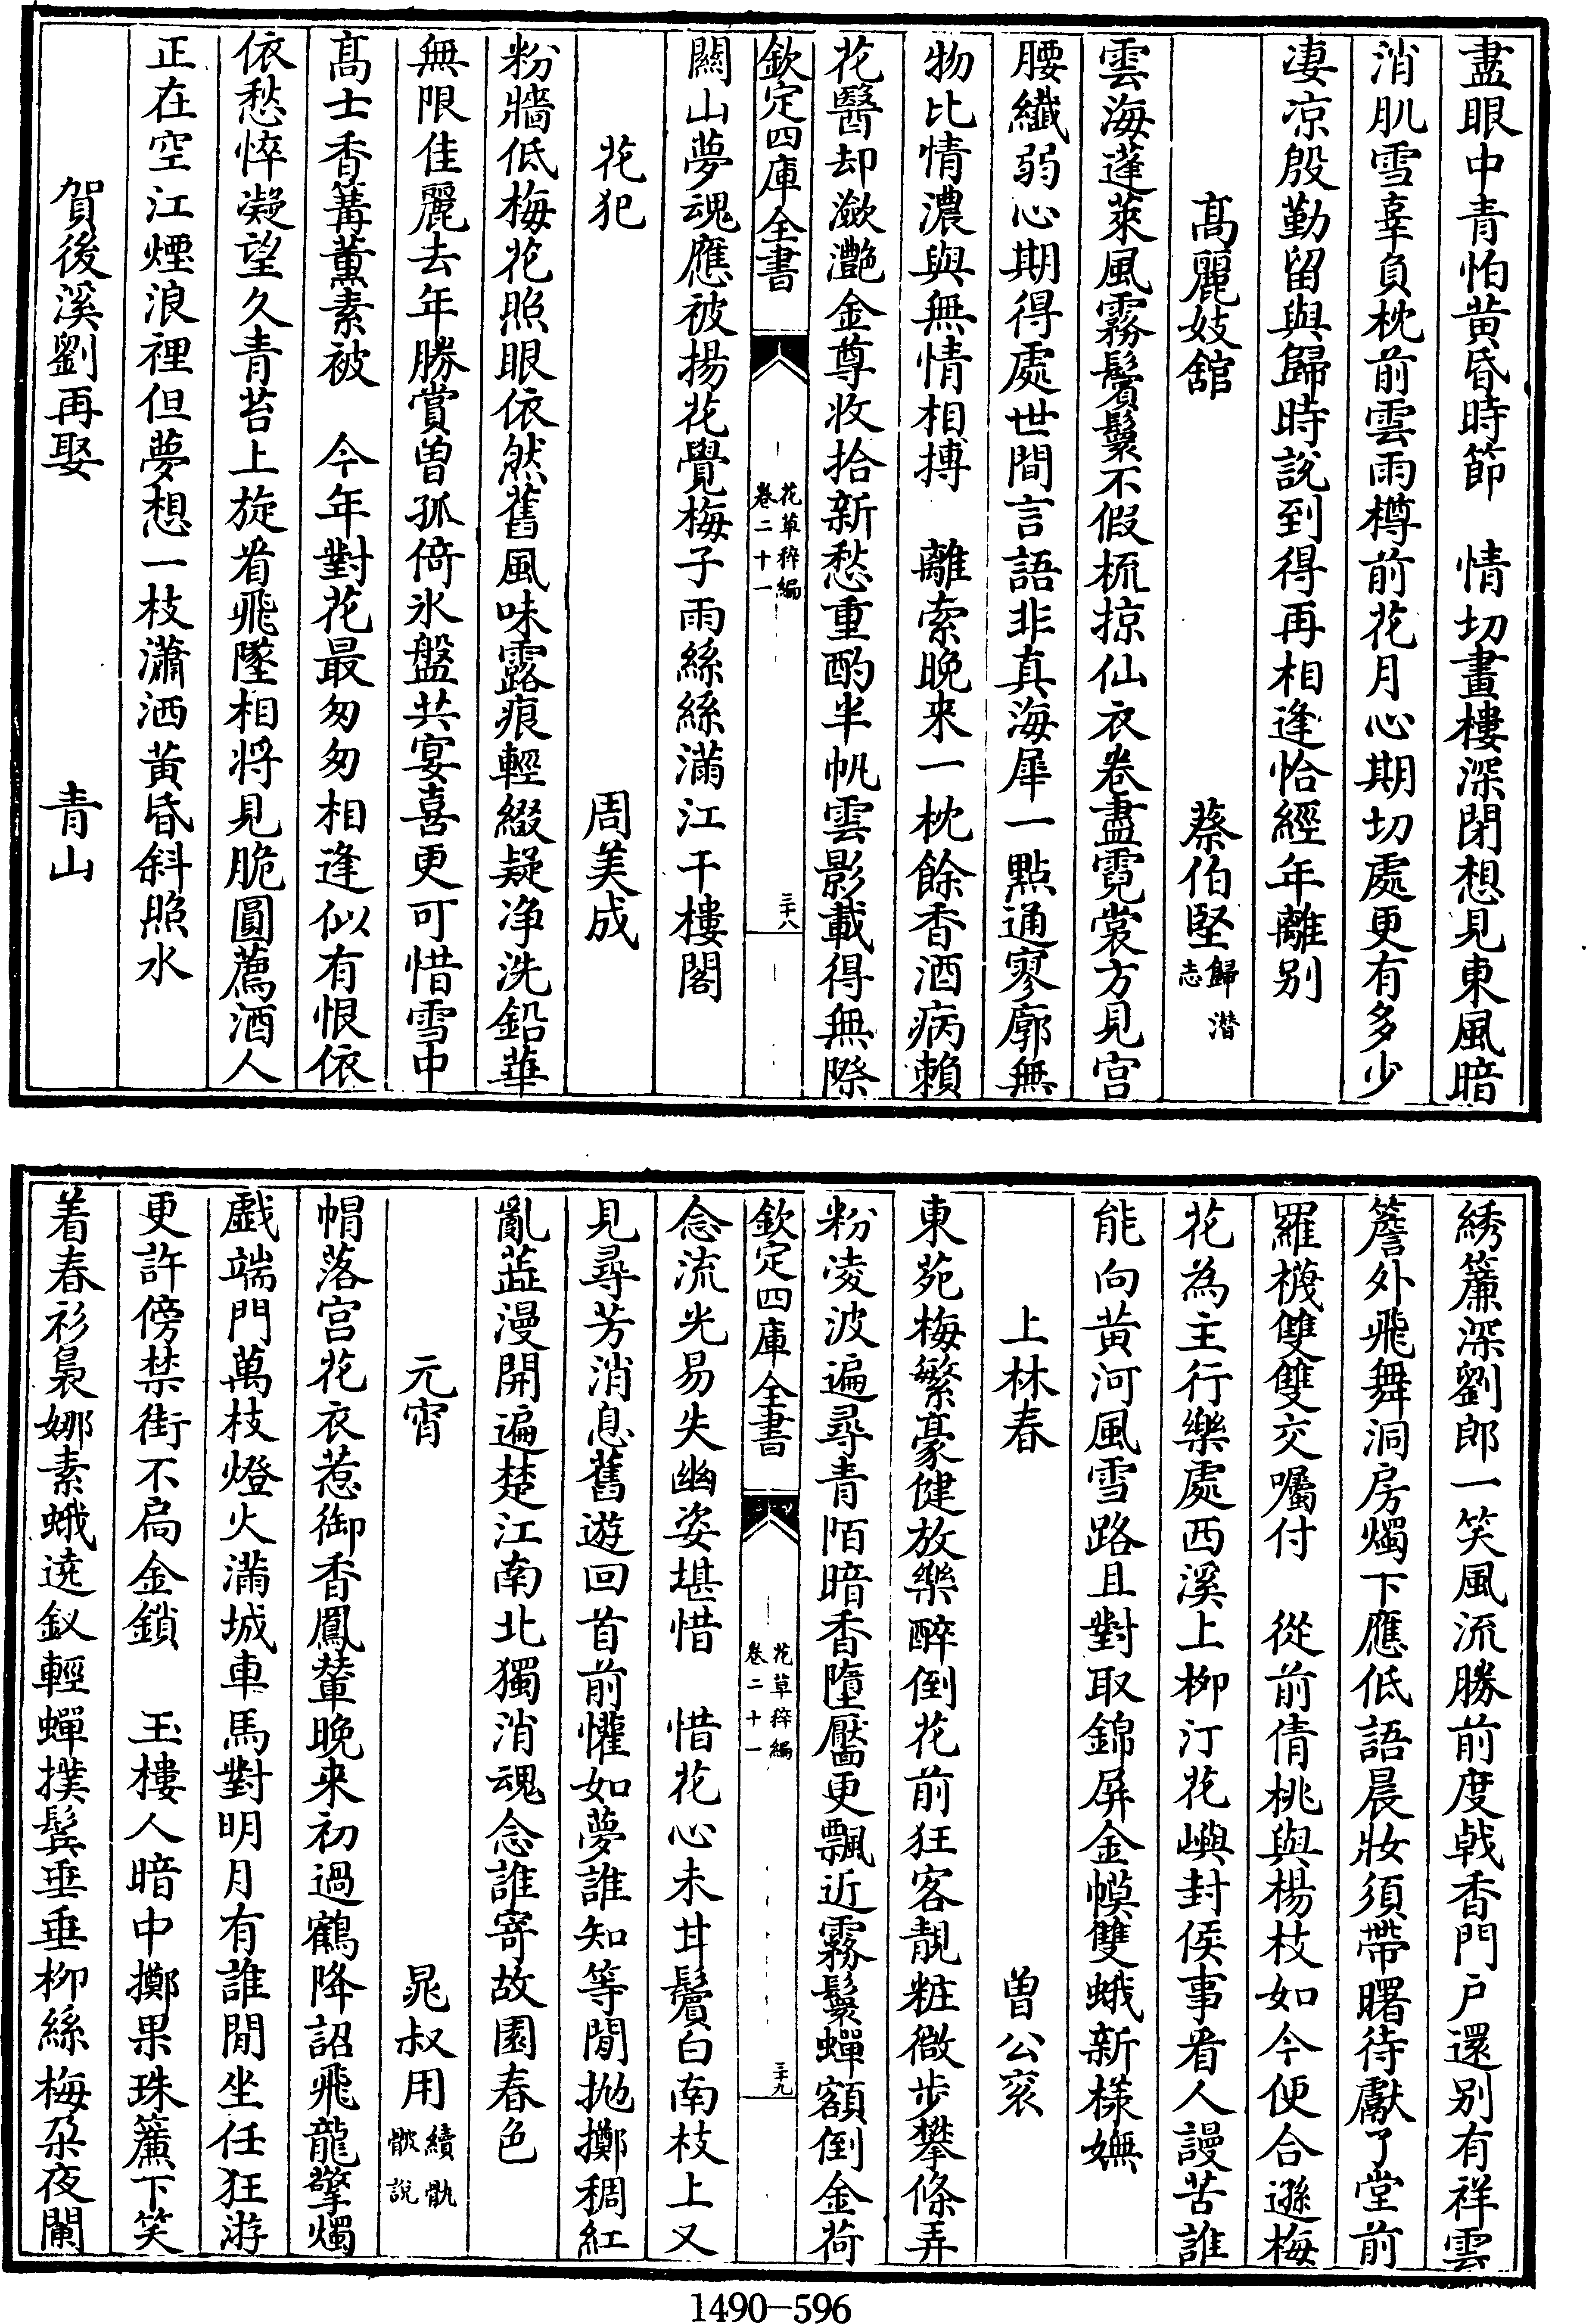 盡眼中青怕黄昏時節　情切畫樓深閉想見東風暗
消肌雪辜負枕前雲雨樽前花月心期切處更有多少
凄凉殷勤留與歸時說到得再相逢恰經年離别
髙麗妓舘　蔡伯堅歸潜志
雲海蓬萊風霧鬢鬟不假梳掠仙衣卷盡霓裳方見宫
腰纖弱心期得處世間言語非真海犀一點通寥廓無
物比情濃與無情相搏　離索晚来一枕餘香酒病賴
花醫却瀲灔金尊收拾新愁重酌半帆雲影載得無際
欽定四庫全書　花草稡編卷二十一　三十八
關山夢魂應被揚花覺梅子雨絲絲滿江干樓閣
花犯　周美成
粉牆低梅花照眼依然舊風味露痕輕綴疑净洗鉛華
無限佳麗去年勝賞曾孤倚氷盤共宴喜更可惜雪中
髙士香篝薰素被　今年對花最匆匆相逢似有恨依
依愁悴凝望久青苔上旋看飛墜相将見脆圓薦酒人
正在空江煙浪裡但夢想一枝瀟洒黄昏斜照水
賀後溪劉再娶　青山
綉簾深劉郎一笑風流勝前度戟香門户還别有祥雲
簷外飛舞洞房燭下應低語晨妝須帶曙待獻了堂前
羅襪雙雙交囑付　從前倩桃與楊枝如今便合遜梅
花為主行樂處西溪上柳汀花嶼封侯事看人謾苦誰
能向黄河風雪路且對取錦屏金幙雙蛾新樣嫵
上林春　曾公衮
東苑梅繁豪健放樂醉倒花前狂客靚粧微步攀條弄
粉凌波遍尋青陌暗香墮靨更飄近霧鬟蟬額倒金荷
欽定四庫全書　花草稡編卷二十一　三十九
念流光易失幽姿堪惜　惜花心未甘鬢白南枝上又
見尋芳消息舊遊回首前懽如夢誰知等閒抛擲稠紅
亂蕋漫開遍楚江南北獨消魂念誰寄故園春色
元宵　晁叔用續骩骳説
帽落宫花衣惹御香鳳輦晚来初過鶴降詔飛龍擎燭
戯端門萬枝燈火滿城車馬對明月有誰閒坐任狂游
更許傍禁街不扃金鎖　玉樓人暗中擲果珠簾下笑
着春衫裊娜素蛾遶釵輕蟬撲鬂垂垂柳絲梅朶夜闌
1490—596